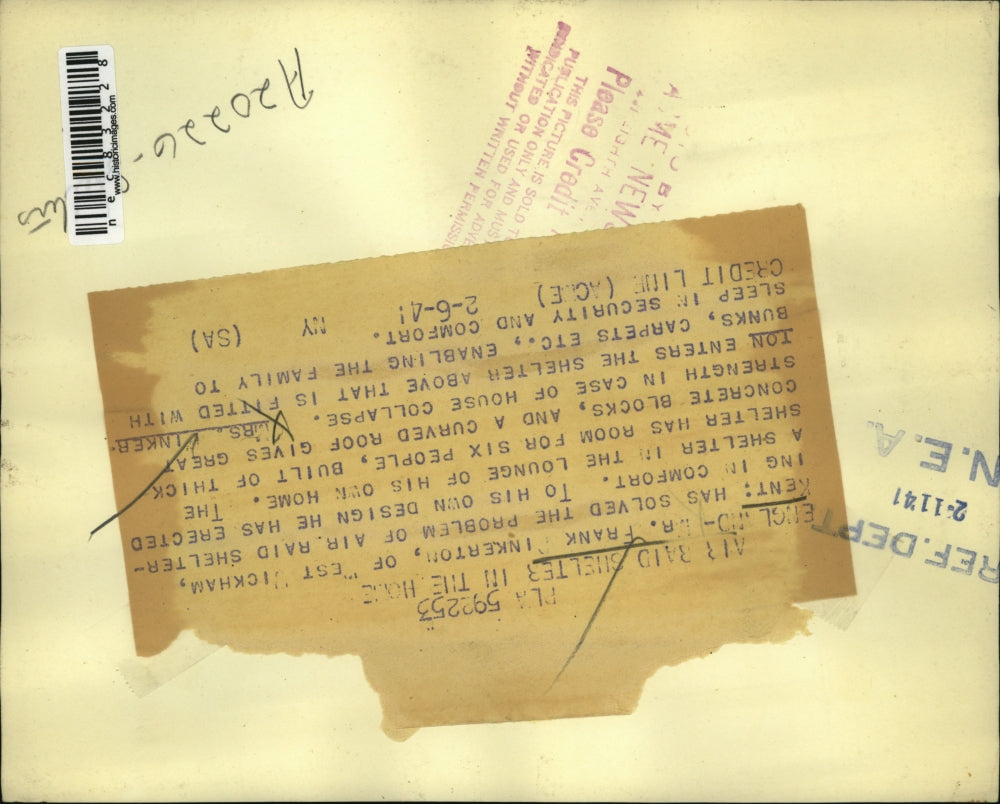 PLA 592253
AIR RAID SHELTER IN THE HOME
ENGLAND-MR. FRANK PINKERTON, OF WEST WICKHAM,
KENT: HAS SOLVED THE PROBLEM OF AIR RAID SHELTER-
ING IN COMFORT. TO HIS OWN DESIGN HE HAS ERECTED
A SHELTER IN THE LOUNGE OF HIS OWN HOME. THE
SHELTER HAS ROOM FOR SIX PEOPLE, BUILT OF THICK
CONCRETE BLOCKS, AND A CURVED ROOF GIVES GREAT
STRENGTH IN CASE OF HOUSE COLLAPSE. MRS. PINKER-
TON ENTERS THE SHELTER ABOVE THAT IS FITTED WITH
BUNKS, CARPETS ETC., ENABLING THE FAMILY TO
SLEEP IN SECURITY AND COMFORT.
CREDIT LINE (ACME) 2-6-41 NY (SA)
REF. DEPT
2-11-41
N.E.A.
BY
ACME NEWS
EIGHTH AVE
Please Credit A
THIS PICTURE IS SOLD T
PUBLICATION ONLY AND MUS
SYNDICATED OR USED FOR ADVE
WITHOUT WRITTEN PERMISSI
A20226.
nec83228
www.historicimages.com